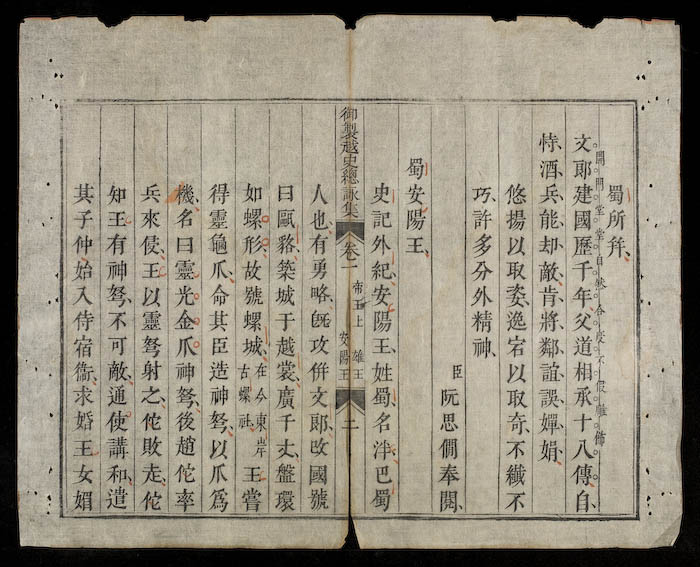 蜀所幷
開門堂堂自然合度不假雕飾
文郎建國歷千年父道相承十八傳自
恃酒兵能却敵肯將鄰誼誤嬋娟
悠揚以取姿逸宕以取奇不纖不
巧許多分外精神
臣阮思僩奉閱
蜀安陽王
史記外紀安陽王姓蜀名泮巴蜀
御製越史總詠集 卷一 帝王上 雄王 安陽王 二
人也有勇略旣攻倂文郎改國號
曰甌貉築城于越裳廣千丈盤環
如螺形故號螺城在今東岸古螺社王嘗
得靈龜爪命其臣造神弩以爪爲
機名曰靈光金爪神弩後趙佗率
兵來侵王以靈弩射之佗敗走佗
知王有神弩不可敵通使講和遣
其子仲始入侍宿衞求婚王女媚